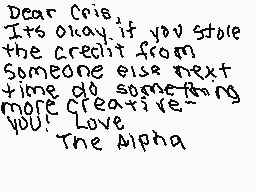 Dear Cris,
Its okay if you stole
the credit from
someone else next
time do something
more creative~
you! Love
The Alpha